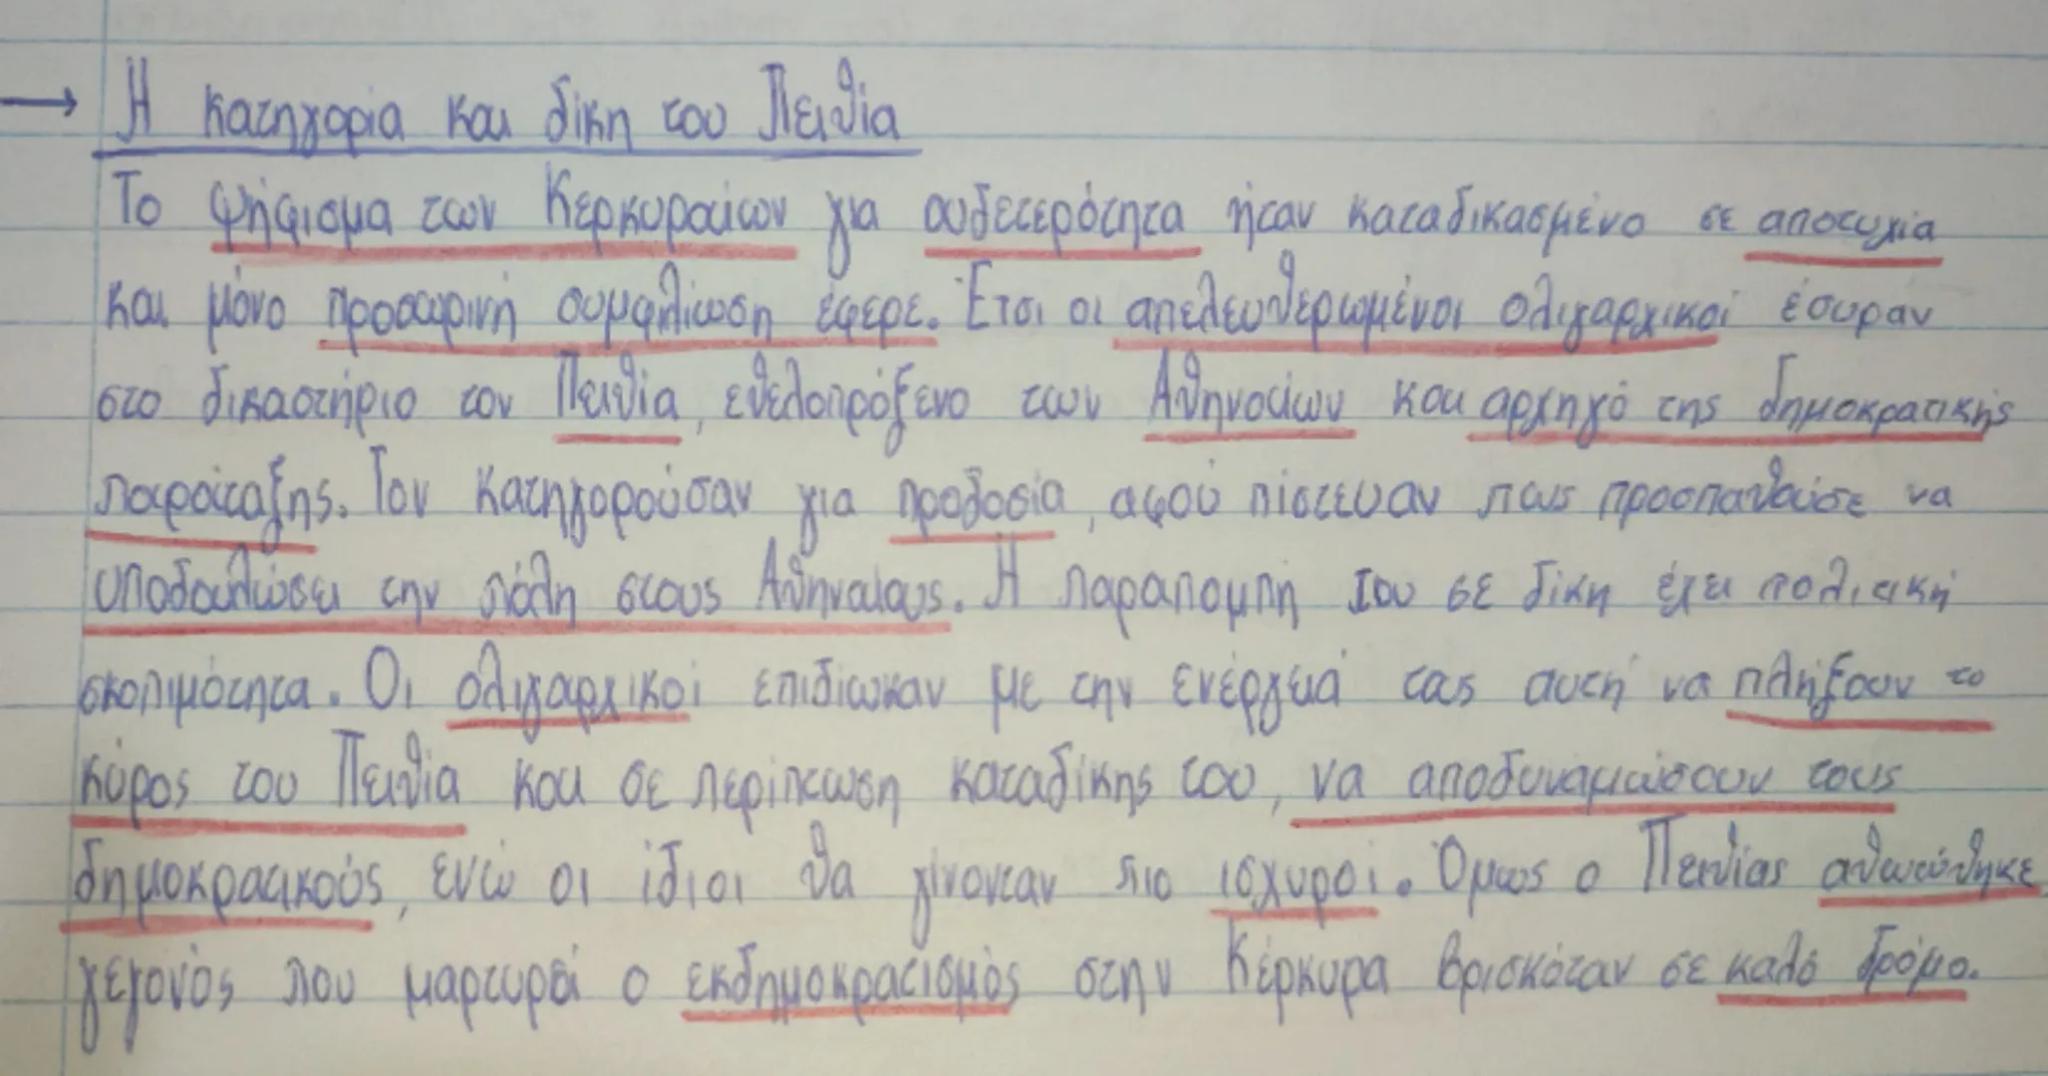 → Η κατηγορία και δίκη του Πειθία
Το ψήφισμα των Κερκυραίων για ουδετερότητα ήταν καταδικασμένο σε αποτυχία
και μόνο προσωρινή συμφιλίωση έφερε. Έτσι οι απελευθερωμένοι ολιγαρχικοί έσυραν
στο δικαστήριο τον Πειθία, εθελοπρόξενο των Αθηναίων και αρχηγό της δημοκρατικής
παράταξης. Τον κατηγορούσαν για προδοσία, αφού πίστευαν πως προσπαθούσε να
υποδουλώσει την πόλη στους Αθηναίους. Η παραπομπή του σε δίκη έχει πολιτική
σκοπιμότητα. Οι ολιγαρχικοί επιδίωκαν με την ενέργειά τας αυτή να πλήξουν το
κύρος του Πειθία και σε περίπτωση καταδίκης του, να αποδυναμώσουν τους
δημοκρατικούς, ενώ οι ίδιοι θα γίνονταν πιο ισχυροί. Όμως ο Πειθίας αθωώθηκε
γεγονός που μαρτυρεί ο εκδημοκρατισμός στην Κέρκυρα βρισκόταν σε καλό δρόμο.